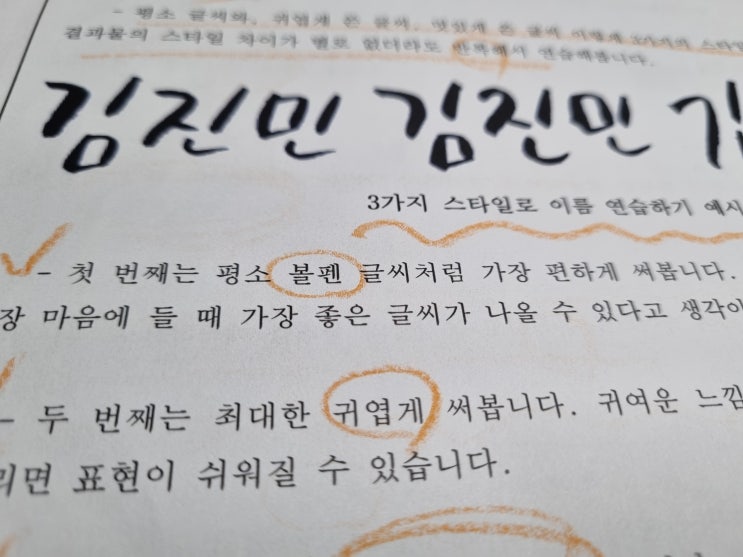 - 평소 글씨와, 귀엽게 쓴 글씨, 멋있게 쓴 글씨 이렇게 3가지의 스타일
결과물의 스타일 차이가 별로 없더라도 반복해서 연습해봅니다.
김진민 김진민 김
3가지 스타일로 이름 연습하기 예시
- 첫 번째는 평소 볼펜 글씨처럼 가장 편하게 써봅니다.
장 마음에 들 때 가장 좋은 글씨가 나올 수 있다고 생각이
- 두 번째는 최대한 귀엽게 써봅니다. 귀여운 느낌
리면 표현이 쉬워질 수 있습니다.